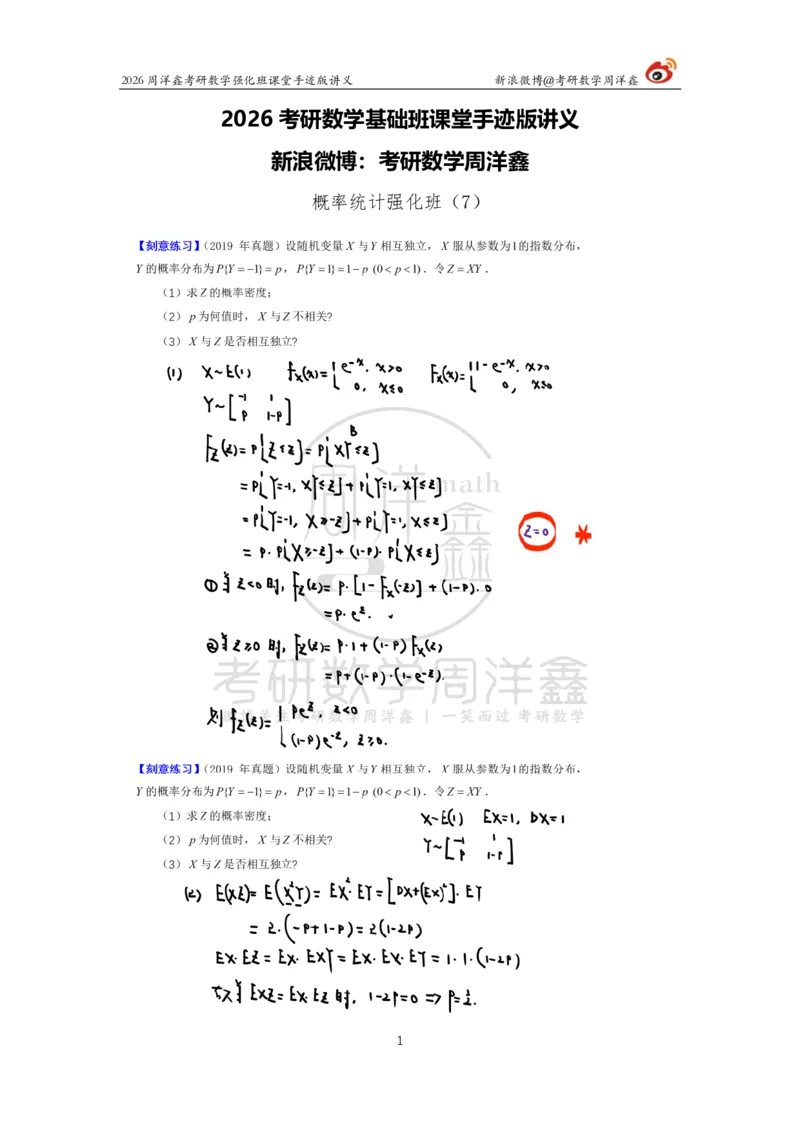 2026周洋鑫考研数学强化班课堂手迹版讲义 新浪微博@考研数学周洋鑫
2026考研数学基础班课堂手迹版讲义
新浪微博：考研数学周洋鑫
概率统计强化班（7）
【刻意练习】（2019 年真题）设随机变量X与Y相互独立，X服从参数为1的指数分布，
Y的概率分布为P{Y=-1}=p，P{Y=1}=1-p (0<p<1)．令Z=XY．
（1）求Z的概率密度；
（2）p为何值时，X与Z不相关？
（3）X与Z是否相互独立？
(1) X~E(1) f_X(x)={e^{-x}, x>0; 0, x≤0 F_X(x)={1-e^{-x}, x>0; 0, x≤0
Y~[-1 1; P 1-P]
B
F_Z(z)=P{Z≤z}=P{XY≤z}
=P{Y=-1, XY≤z}+P{Y=1, XY≤z}
=P{Y=-1, X≥-z}+P{Y=1, X≤z}
Z=0 *
=P·P{X≥-z}+(1-P)·P{X≤z}
①当z<0时, F_Z(z)=P·[1-F_X(-z)]+(1-P)·0
=P·e^z.
②当z≥0时, F_Z(z)=P·1+(1-P)F_X(z)
=P+(1-P)·(1-e^{-z}).
则f_Z(z)={Pe^z, z<0
(1-P)e^{-z}, z≥0.
周洋鑫math
考研数学周洋鑫
微博关注考研数学周洋鑫 | 一笑而过 考研数学
【刻意练习】（2019 年真题）设随机变量X与Y相互独立，X服从参数为1的指数分布，
Y的概率分布为P{Y=-1}=p，P{Y=1}=1-p (0<p<1)．令Z=XY．
（1）求Z的概率密度；
X~E(1) EX=1, DX=1
（2）p为何值时，X与Z不相关？
Y~[-1 1; P 1-P]
（3）X与Z是否相互独立？
(2) E(XZ)=E(X²Y)=EX²·EY=[DX+(EX)²]·EY
=2·(-P+1-P)=2(1-2P)
EX·EZ=EX·EXY=EX·EX·EY=1·1·(1-2P)
故当EXZ=EX·EZ时, 1-2P=0⇒P=½.
1